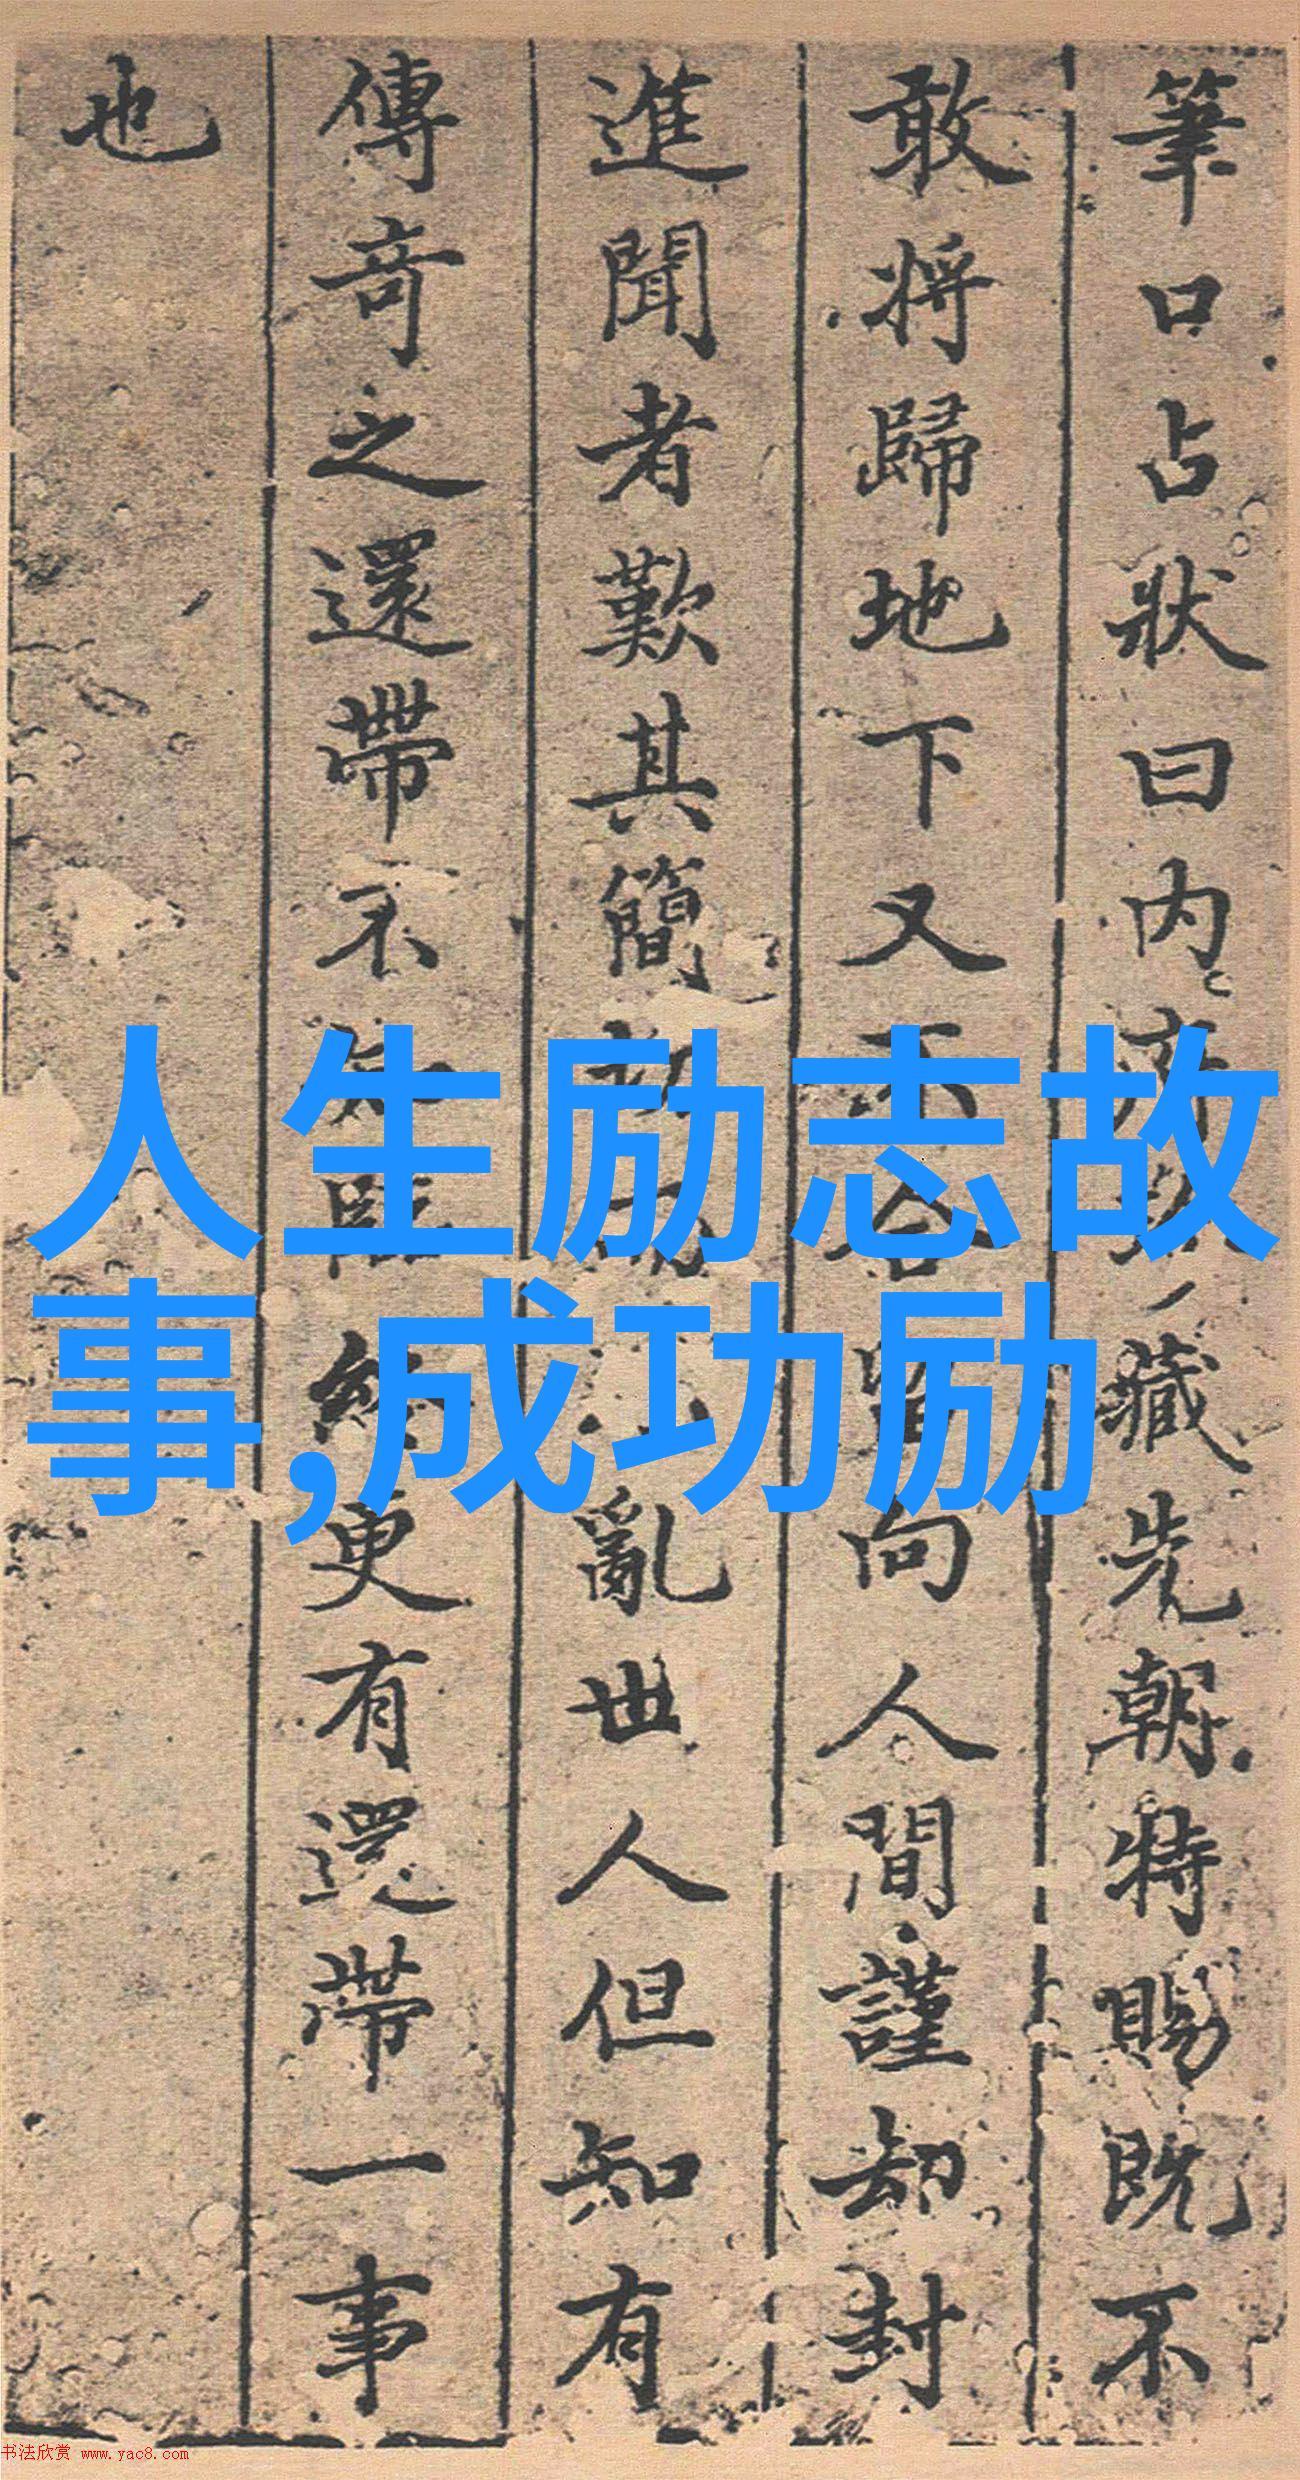 筆口占狀曰内藏先朝特賜既不
敢將歸地下又不合留向人間謹却封
進聞者歎其簡亂世人但知有
傳奇之還帶不知臨終更有還帶一事
也
人生励志故
事,成功励
书法欣赏 www.yac8.com